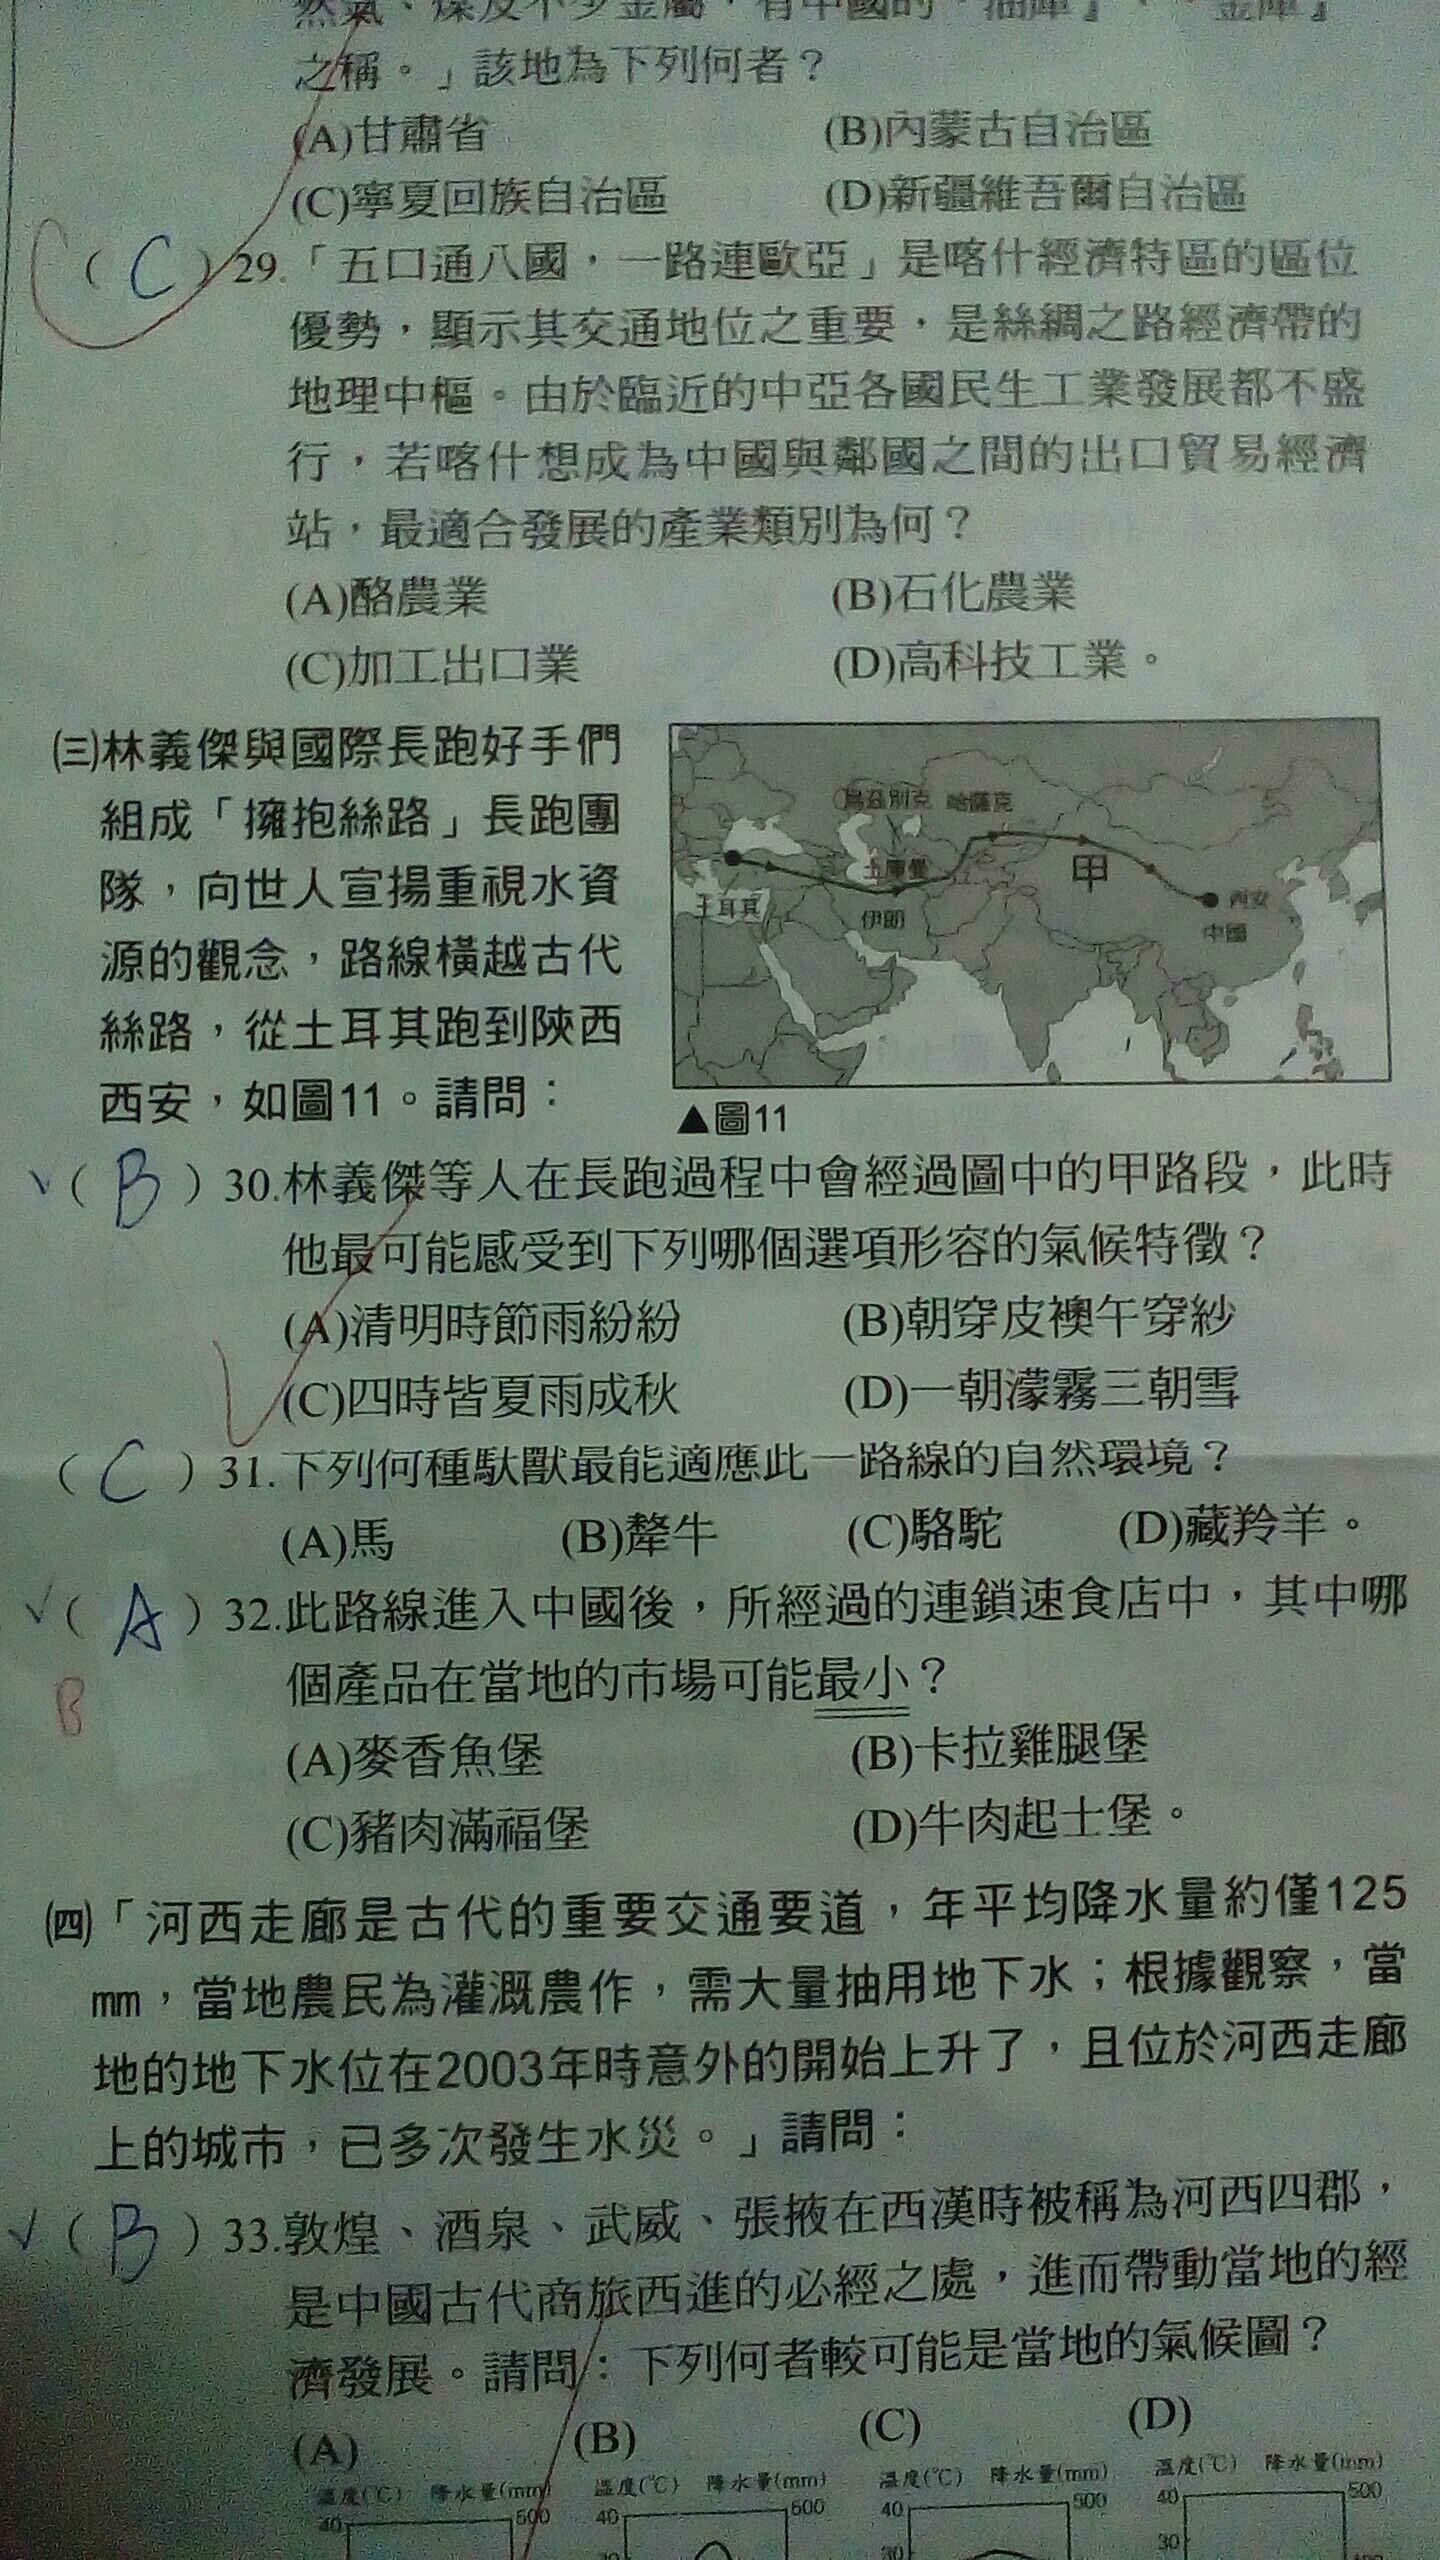 然氣、煤及不少金屬，有中國的『油庫』、『金庫』
之稱。」該地為下列何者？
(A)甘肅省 (B)內蒙古自治區
(C)寧夏回族自治區 (D)新疆維吾爾自治區
( C ) 29.「五口通八國，一路連歐亞」是喀什經濟特區的區位
優勢，顯示其交通地位之重要，是絲綢之路經濟帶的
地理中樞。由於臨近的中亞各國民生工業發展都不盛
行，若喀什想成為中國與鄰國之間的出口貿易經濟
站，最適合發展的產業類別為何？
(A)酪農業 (B)石化農業
(C)加工出口業 (D)高科技工業。
㈢林義傑與國際長跑好手們
組成「擁抱絲路」長跑團
隊，向世人宣揚重視水資
源的觀念，路線橫越古代
絲路，從土耳其跑到陝西
西安，如圖11。請問：
烏茲別克 哈薩克
土庫曼 甲
土耳其 伊朗 西安
中國
▲圖11
✓( B ) 30.林義傑等人在長跑過程中會經過圖中的甲路段，此時
他最可能感受到下列哪個選項形容的氣候特徵？
(A)清明時節雨紛紛 (B)朝穿皮襖午穿紗
(C)四時皆夏雨成秋 (D)一朝濛霧三朝雪
( C ) 31.下列何種馱獸最能適應此一路線的自然環境？
(A)馬 (B)犛牛 (C)駱駝 (D)藏羚羊。
✓( A ) 32.此路線進入中國後，所經過的連鎖速食店中，其中哪
B
個產品在當地的市場可能最小？
(A)麥香魚堡 (B)卡拉雞腿堡
(C)豬肉滿福堡 (D)牛肉起士堡。
㈣「河西走廊是古代的重要交通要道，年平均降水量約僅125
mm，當地農民為灌溉農作，需大量抽用地下水；根據觀察，當
地的地下水位在2003年時意外的開始上升了，且位於河西走廊
上的城市，已多次發生水災。」請問：
✓( B ) 33.敦煌、酒泉、武威、張掖在西漢時被稱為河西四郡，
是中國古代商旅西進的必經之處，進而帶動當地的經
濟發展。請問：下列何者較可能是當地的氣候圖？
(A) (B) (C) (D)
溫度(℃) 降水量(mm) 溫度(℃) 降水量(mm) 溫度(℃) 降水量(mm) 溫度(℃) 降水量(mm)
40 500 40 500 40 500 40 500
30 30